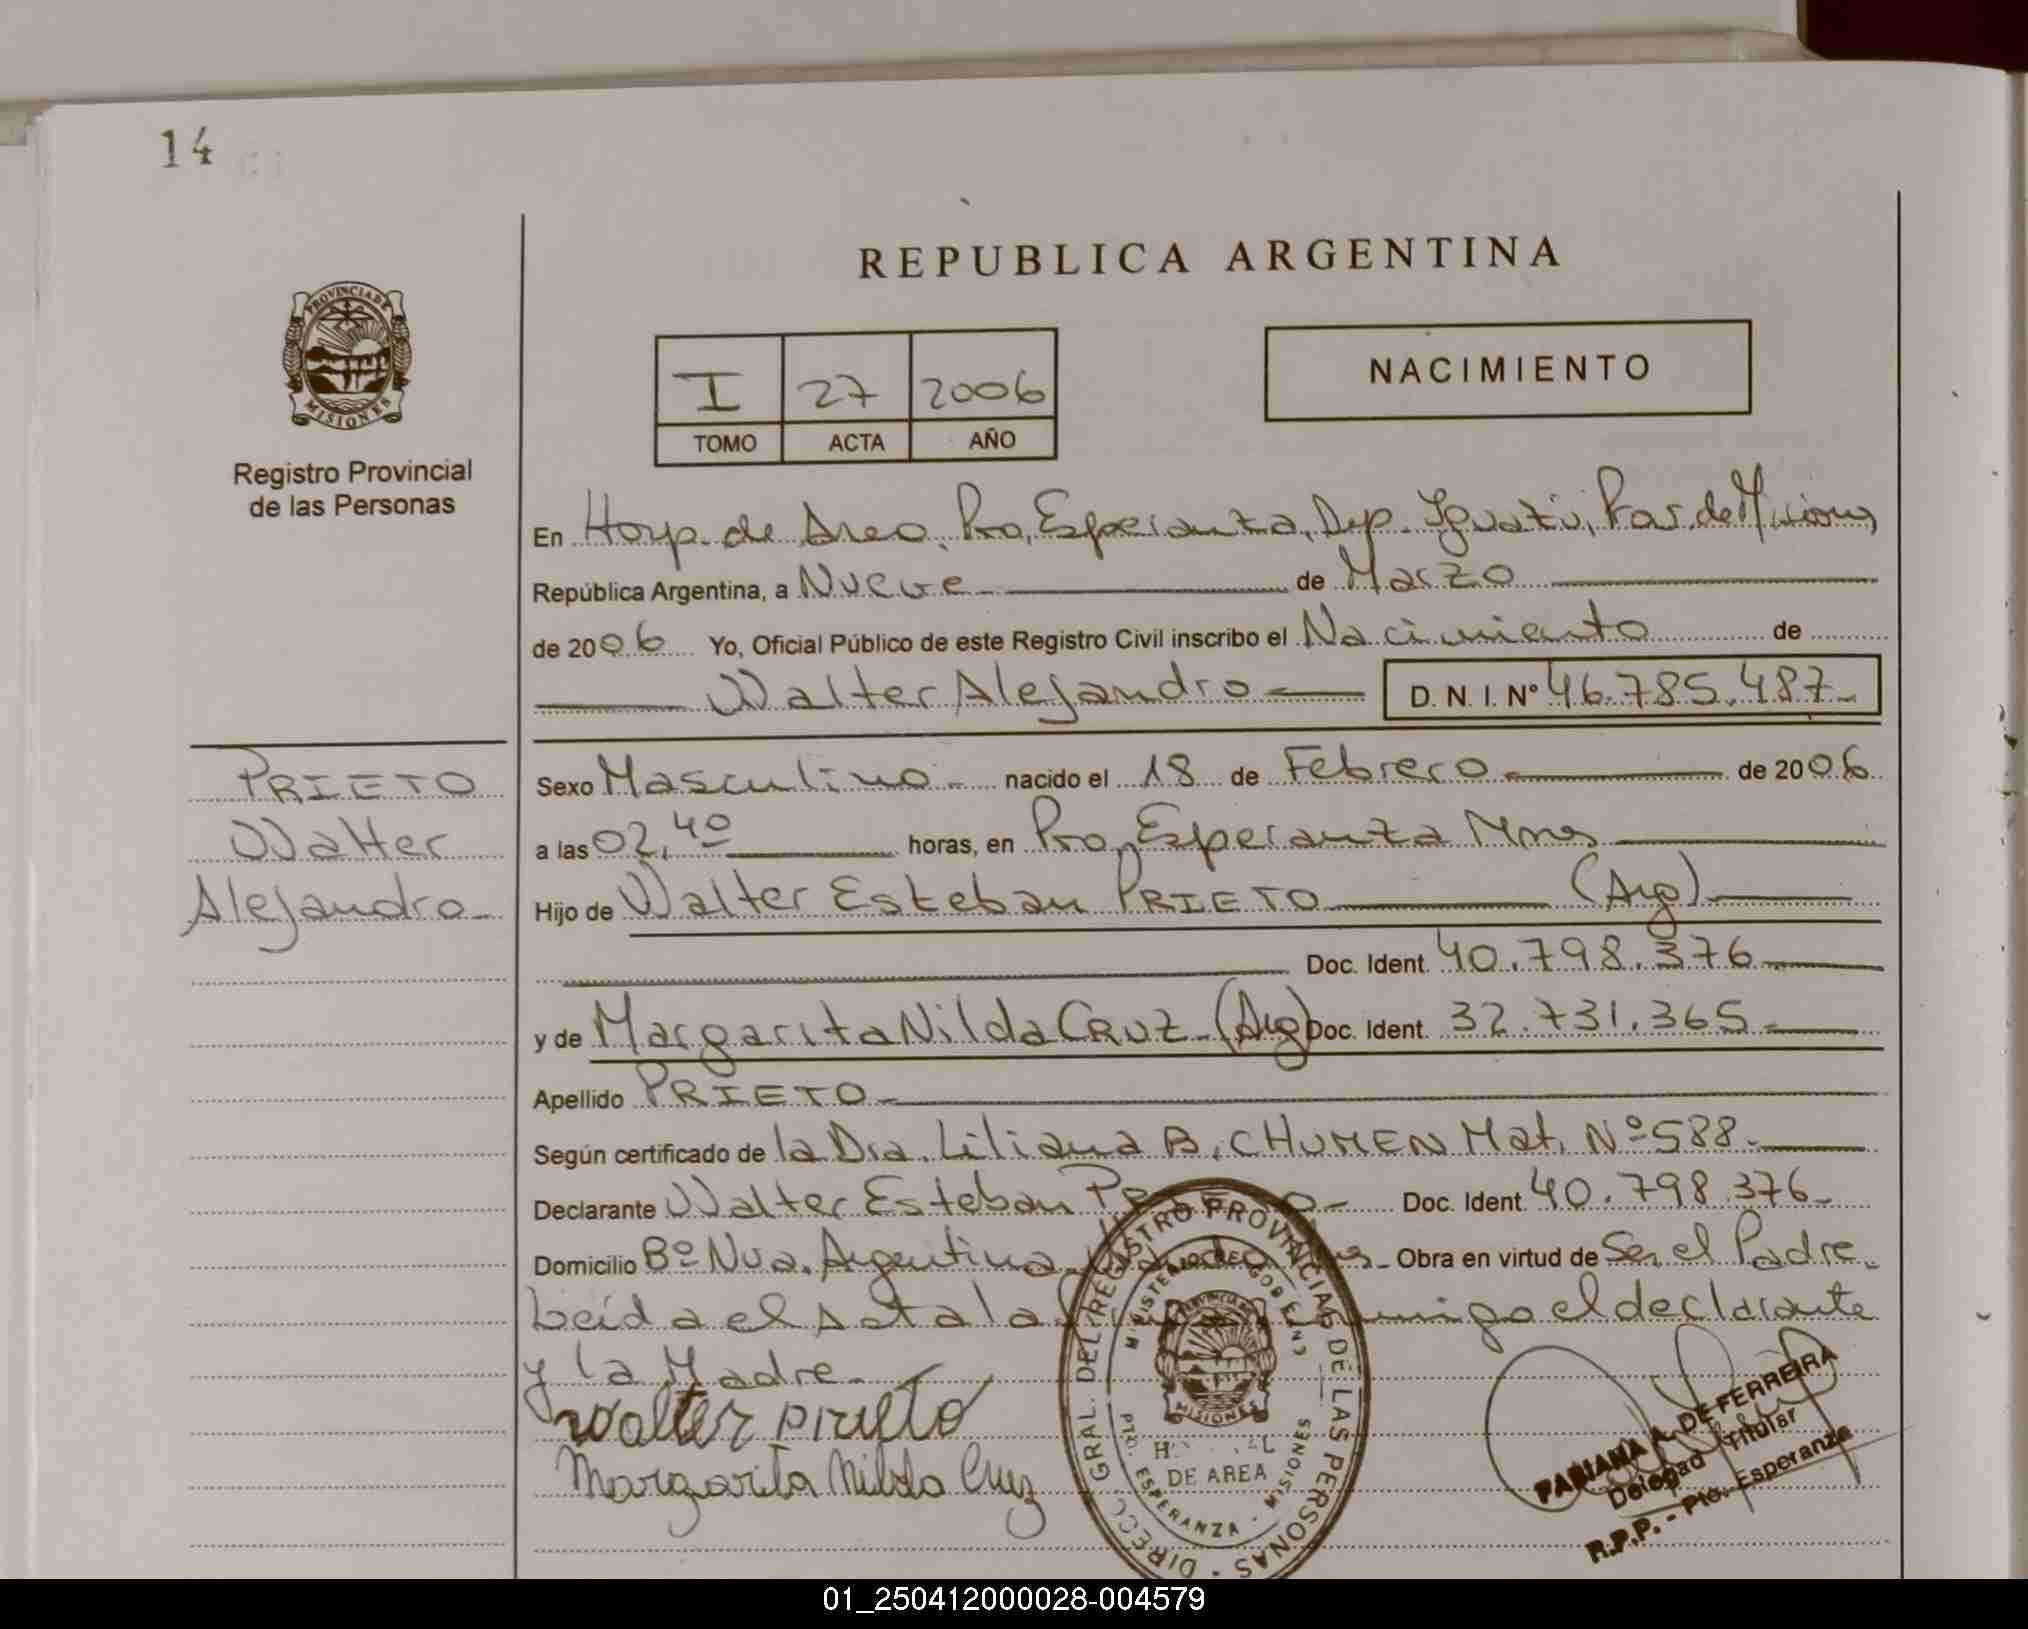 14
REPUBLICA ARGENTINA
PROVINCIA DE
MISIONES
Registro Provincial
de las Personas
I 27 2006
TOMO ACTA AÑO
NACIMIENTO
En Hosp. de Area, Pto, Esperanza, Dep. Iguazú, de Misiones
República Argentina, a Nueve de Marzo
de 2006 Yo, Oficial Público de este Registro Civil inscribo el Nacimiento de
Walter Alejandro D. N. I. Nº 46.785.487
PRIETO
Walter
Alejandro
Sexo Masculino nacido el 18 de Febrero de 2006
a las 02,40 horas, en Pto, Esperanza Mnes
Hijo de Walter Esteban PRIETO (Arg)
Doc. Ident. 40.798.376
y de Margarita Nilda CRUZ (Arg) Doc. Ident. 32.731.365
Apellido PRIETO
Según certificado de la Dra. Liliana B. CHUMEN Mat. Nº 588
Declarante Walter Esteban Doc. Ident. 40.798.376
Domicilio Bº Nva. Argentina Obra en virtud de Ser el Padre
Leída el Acta la conmigo el declarante
y la Madre
Walter Prieto
Margarita Nilda Cruz
DIRECC. GRAL. DEL REGISTRO PROVINCIAL DE LAS PERSONAS
MINISTERIO DE GOBIERNO
PROVINCIA DE
MISIONES
DE AREA
PTO. ESPERANZA - MISIONES
FABIANA A. DE FERREIRA
Delegad Titular
R.P.P. - Pto. Esperanza
01_250412000028-004579